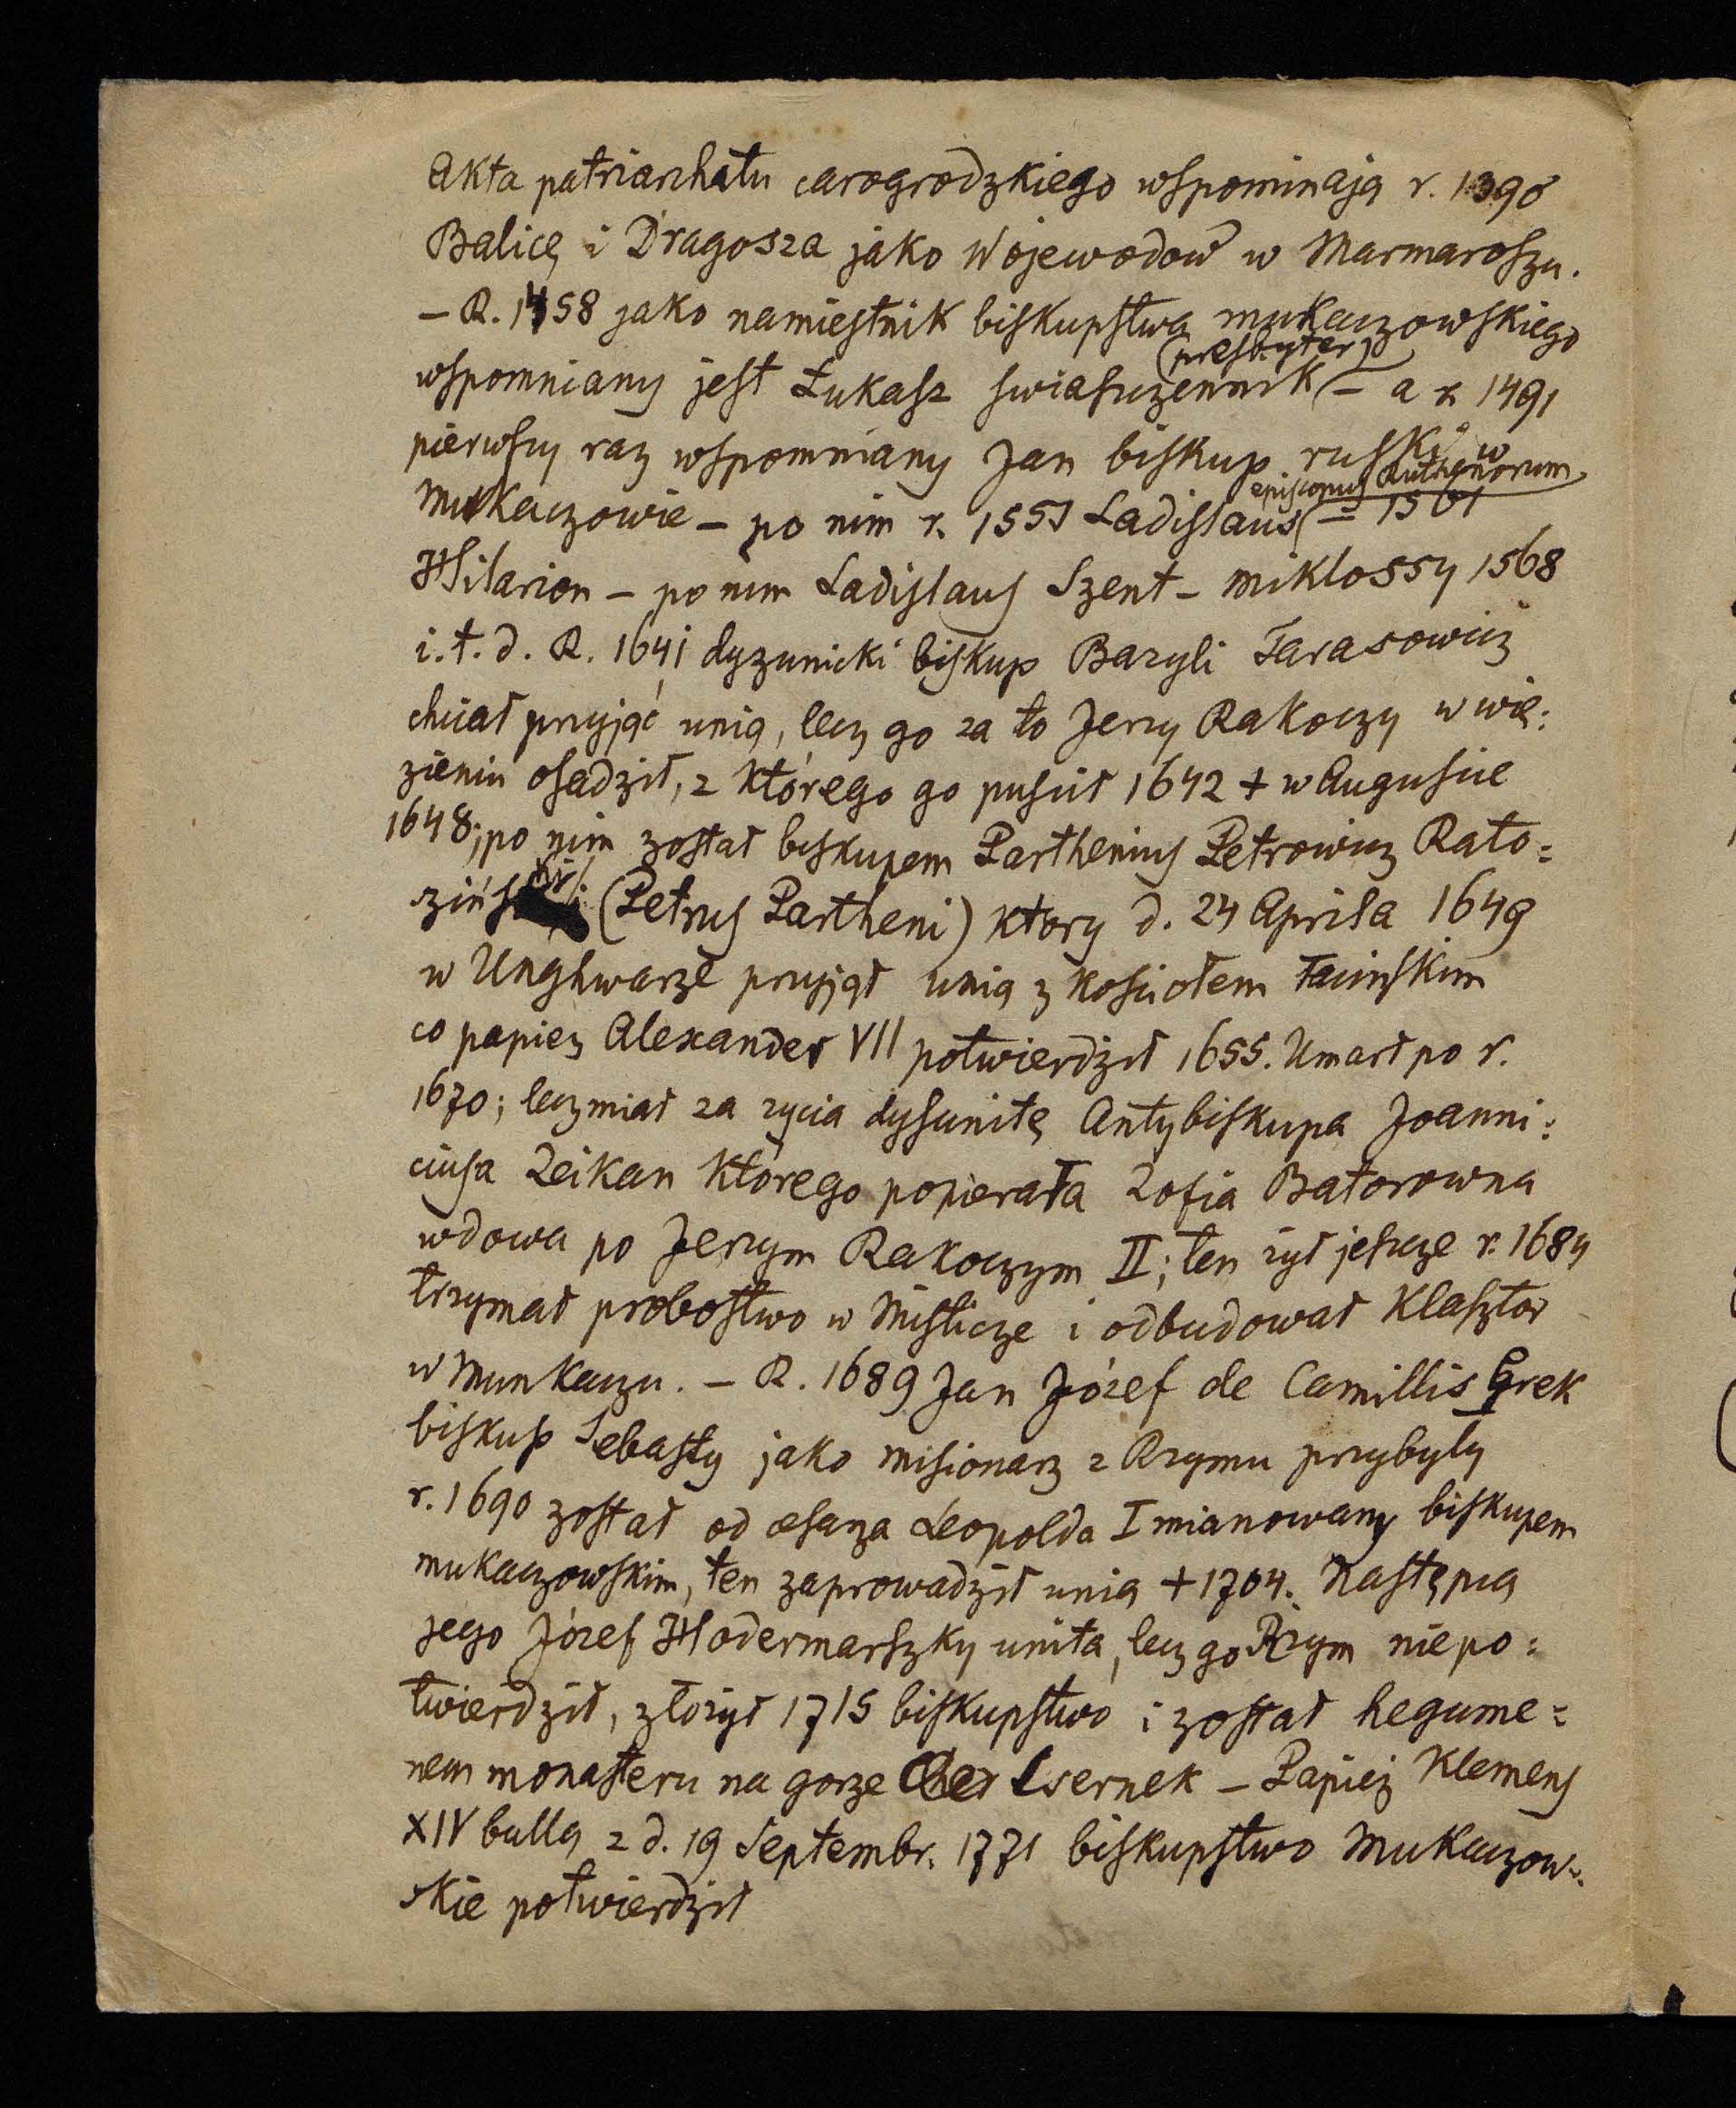 Akta patriarchatu carogrodzkiego wspominają r. 1390
Balicę i Dragosza jako Wojewodow w Marmaroszu.
— R. 1458 jako namiestnik biskupstwa mukaczowskiego
(presbyter)
wspomniany jest Łukasz swiaszczennik — a r. 1491
pierwszy raz wspomniany Jan biskup ruski w
episcopus Ruthenorum
Mukaczowie — po nim r. 1551 Ladislaus — 1561
Hilarion — po nim Ladislaus Szent-Miklossy 1568
i. t. d. R. 1641 dyzunicki biskup Bazyli Tarasowicz
chciał przyjąć unią, lecz go za to Jerzy Rakoczy w wię:
zieniu osadził, z którego go puścił 1642 + w Auguście
1648; po nim został biskupem Parthenius Petrowicz Rato=
ziński (Petrus Partheni) ktory d. 24 Aprila 1649
w Unghwarze przyjął unią z kościołem łacińskim
co papiez Alexander VII potwierdził 1655. Umarł po r.
1670; lecz miał za zycia dysunitę Antybiskupa Joanni:
ciusa Zeikan którego popierała Zofia Batorowna
wdowa po Jerzym Rakoczym II; ten zył jeszcze r. 1684
trzymał probostwo w Misticze i odbudował klasztor
w Munkaczu. — R. 1689 Jan Józef de Camillis Grek
biskup Sebasty jako misionarz z Rzymu przybyły
r. 1690 został od cesarza Leopolda I mianowany biskupem
mukaczowskim, ten zaprowadził unią + 1704. Następcą
jego Józef Hodermarszky unita, lecz go Rzym niepo:
twierdził, złożył 1715 biskupstwo i został hegume=
nem monasteru na gorze Csernek — Papież Klemens
XIV bullą z d. 19 Septembr. 1771 biskupstwo Mukaczow=
skie potwierdził